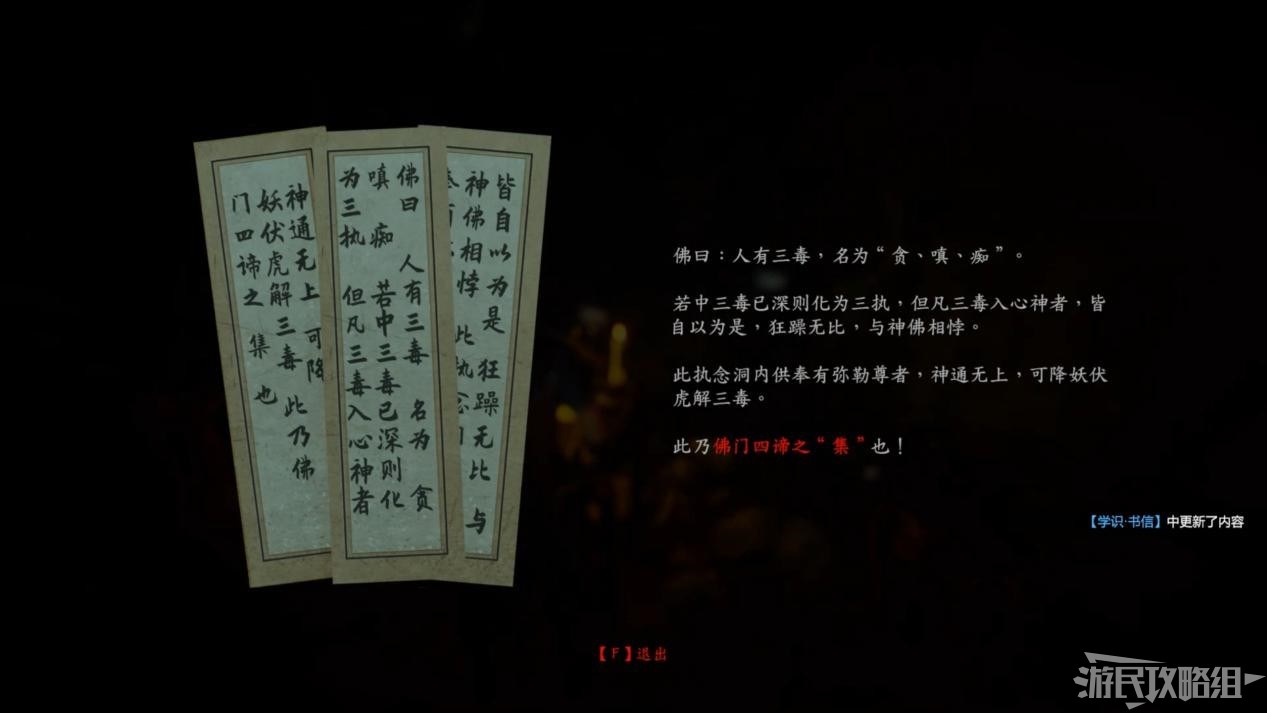 佛曰 人有三毒 名为 贪
嗔 痴 若中三毒已深则化
为三执 但凡三毒入心神者
皆自以为是 狂躁无比 与
神佛相悖 此执念
神通无上 可降
妖伏虎解三毒 此乃佛
门四谛之 集 也
佛曰：人有三毒，名为“贪、嗔、痴”。
若中三毒已深则化为三执，但凡三毒入心神者，皆
自以为是，狂躁无比，与神佛相悖。
此执念洞内供奉有弥勒尊者，神通无上，可降妖伏
虎解三毒。
此乃佛门四谛之“集”也！
【学识·书信】中更新了内容
【F】退出
游民攻略组